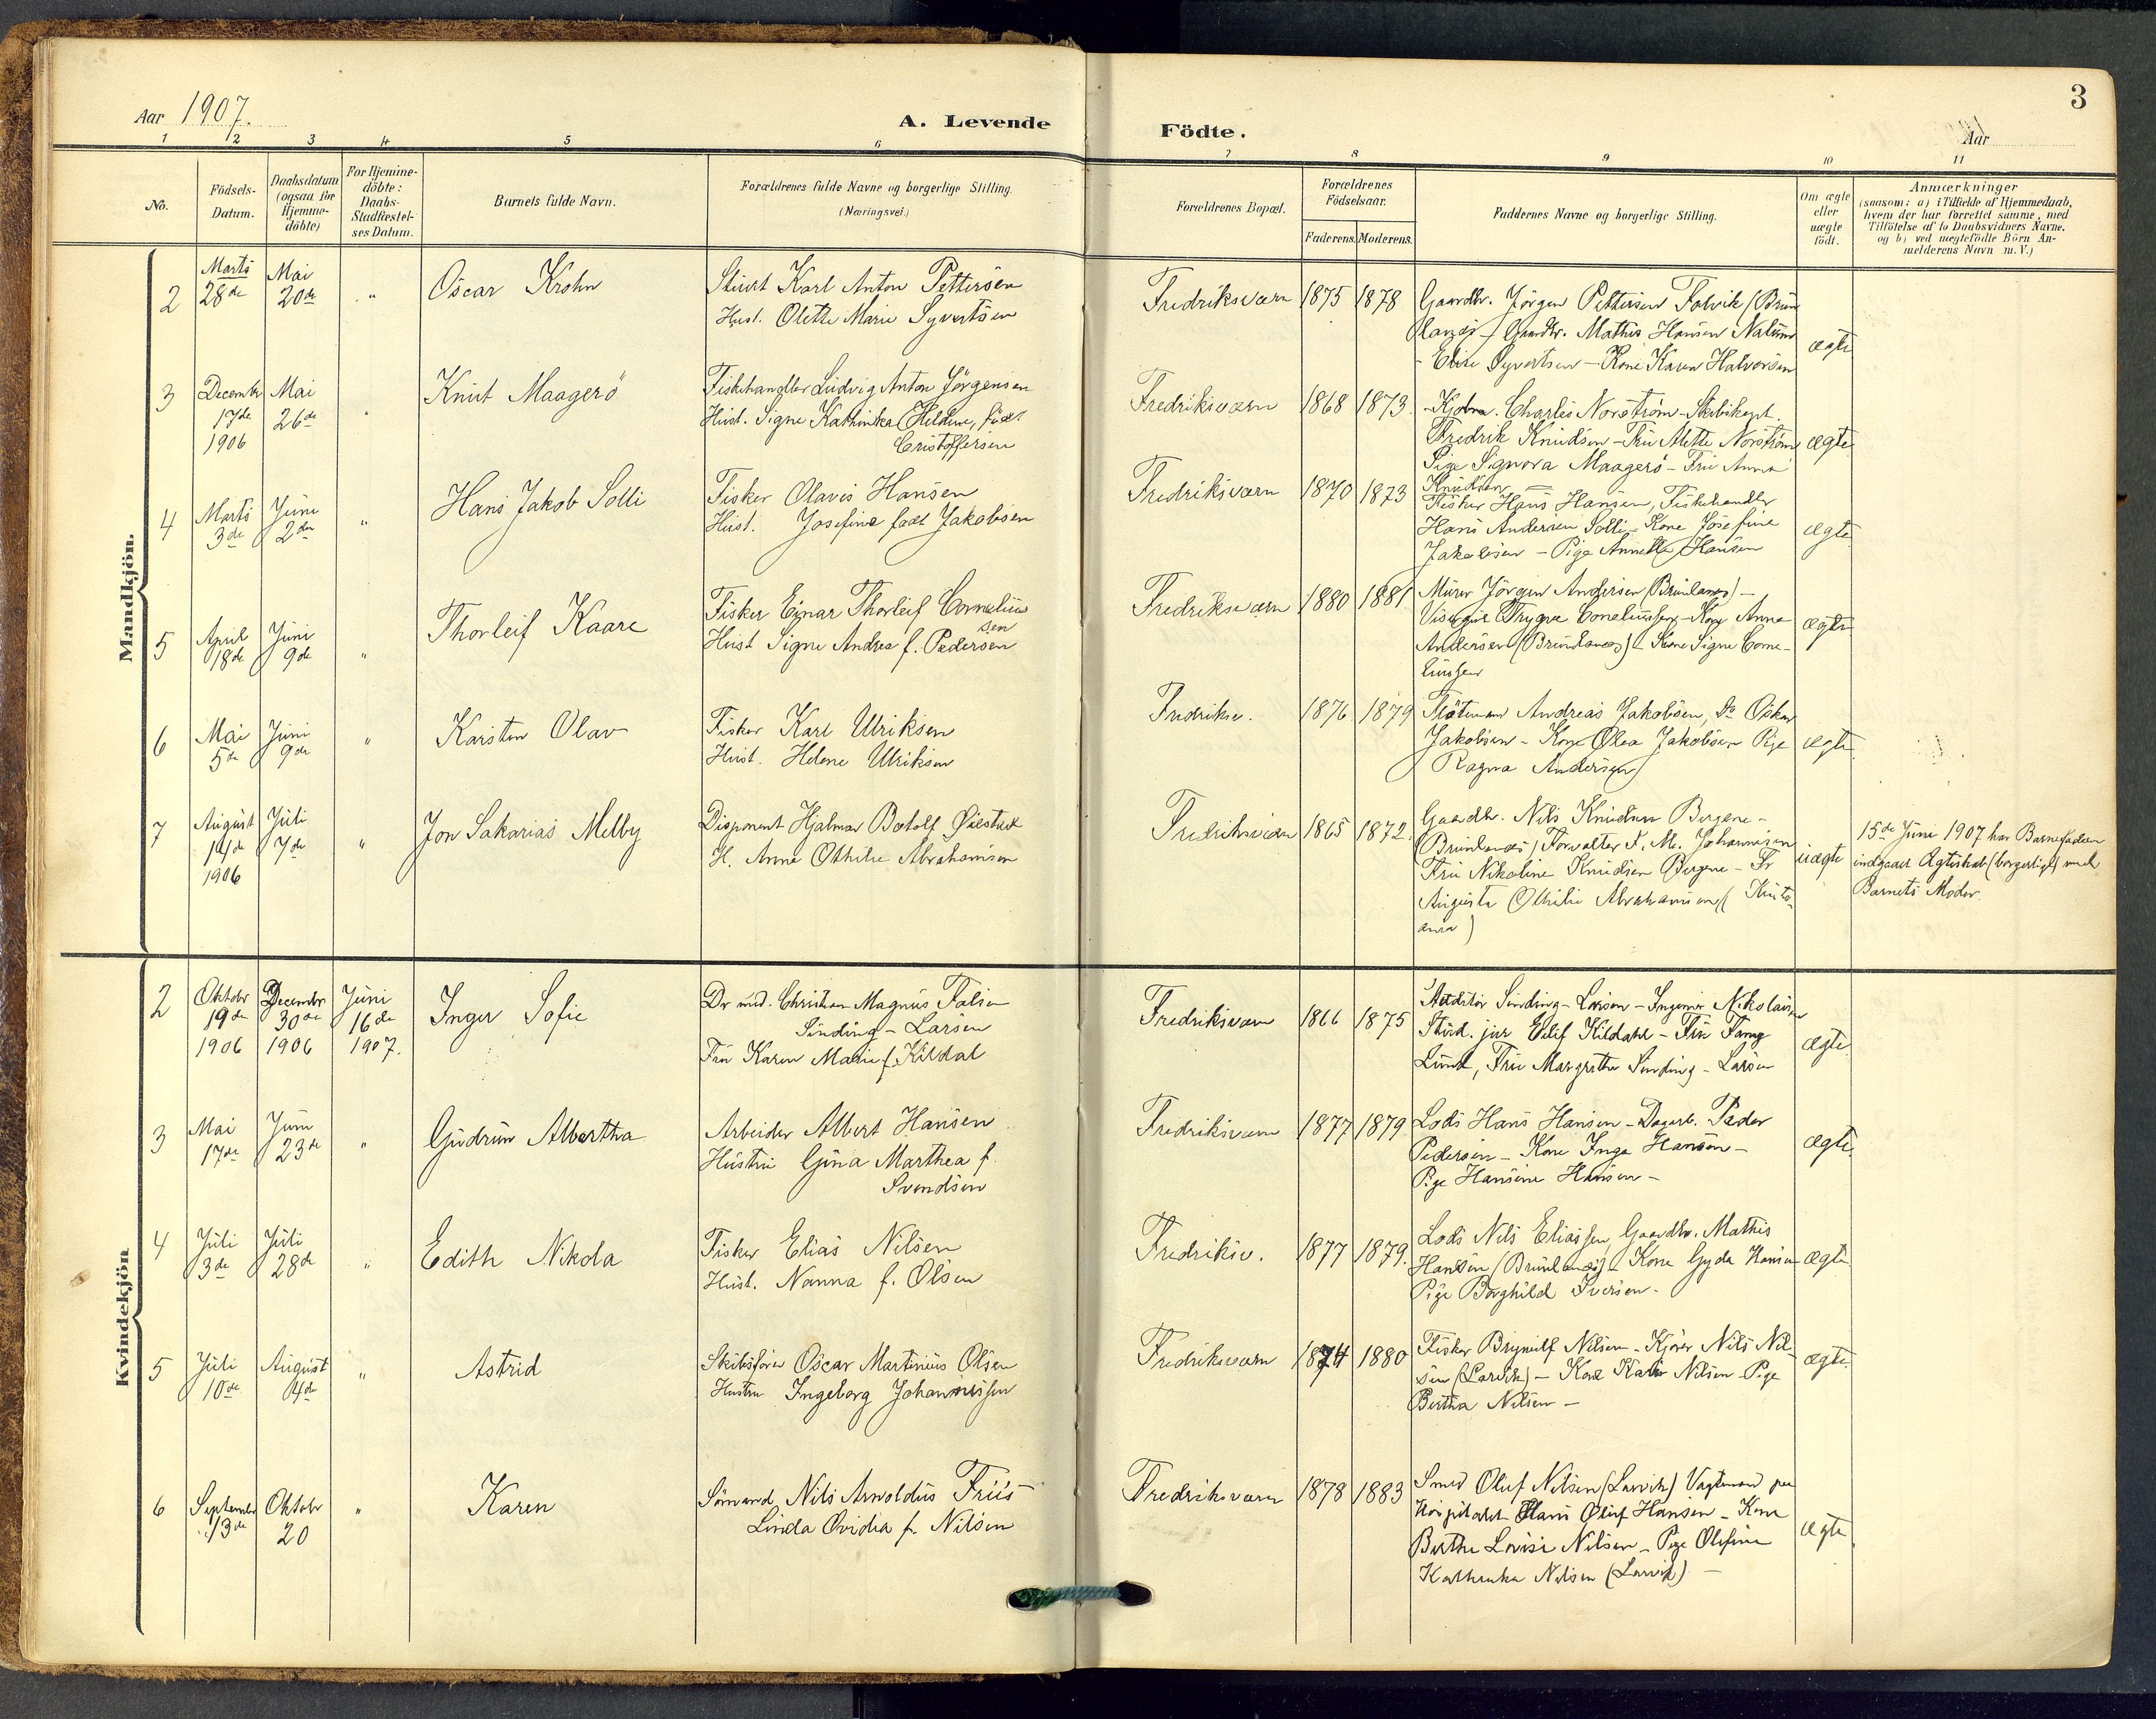 3
Aar 1907.
A. Levende Födte.
Aar
1 2 3 4 5 6 7 8 9 10 11
No.
Födsels-
Datum.
Daabsdatum
(ogsaa for
Hjemme-
döbte)
For Hjemme-
döbte:
Daabs-
Stadfæstel-
ses Datum.
Barnets fulde Navn.
Forældrenes fulde Navne og borgerlige Stilling.
(Næringsvei.)
Forældrenes Bopæl.
Forældrenes
Födselsaar.
Faderens. Moderens.
Faddernes Navne og borgerlige Stilling.
Om ægte
eller
uægte
födt.
Anmærkninger
(saasom: a) i Tilfælde af Hjemmedaab,
hvem der har forrettet samme, med
Tilföielse af to Daabsvidners Navne.
og b) ved uægtefödte Börn An-
melderens Navn m. V.)
Mandkjön.
2
Marts
28de
Mai
20de
"
Oscar Krohn
Stuert Karl Anton Pettersen
Hust. Olette Marie Syvertsen
Fredriksværn
1875
1878
Gaardbr. Jörgen Pettersen Folvik (Brun
lanæs) Gaardbr. Mathis Hansen Nalum
- Elise Syvertsen - Kone Karen Halvorsen
ægte
3
Decembr
17de
1906
Mai
26de
"
Knut Maagerö
Fiskehandler Ludvig Anton Jörgensen
Hust. Signe Kathinka Heldine, födt
Cristoffersen
Fredriksværn
1868
1873.
Charles Norström - Skibskapt.
Fredrik Knudsen - Fru Alette Norström
Pige Signora Maagerö - Fru Anna
Knudsen
ægte
4
Marts
3de
Juni
2den
"
Hans Jakob Solli
Fisker Olavis Hansen
Hust. Josefine födt Jakobsen
Fredriksværn
1870
1873
Fisker Hans Hansen, Fiskehandler
Hans Andersen Solli - Kone Josefine
Jakobsen - Pige Annette Hansen
ægte
5
April
18de
Juni
9de
"
Thorleif Kaare
Fisker Ejnar Thorleif Cornelius
sen
Hust Signe Andrea f. Pedersen
Fredriksværn
1880
1881
Murer Jörgen Andersen (Brunlanæs) -
Visergut Trygve Corneliussen - Kone Anna
Andersen (Brunlanæs) - Kone Signe Corne-
liussen
ægte
6
Mai
5de
Juni
9de
"
Karsten Olav
Fisker Karl Ulriksen
Hust. Helene Ulriksen
Fredriksv.
1876
1879
Flötemand Andreas Jakobsen, Do Oskar
Jakobsen - Kone Olea Jakobsen Pige
Ragna Andersen
ægte
7
August
14de
1906
Juli
7de
"
Jon Sakarias Melby
Disponent Hjalmar Botolf Øiestad
H. Anna Othilie Abrahamsen
Fredriksværn
1865
1872.
Gaardbr. Nils Knudsen Bergene -
(Brunlanæs) Forvalter F. M. Johannesen
Fru Nikoline Knudsen Bergene - Fr
Augusta Othilie Abrahamsen (Kristi-
ania)
uægte
15de Juni 1907 har Barnefaderen
indgaaet Ægteskab (borgerligt) med
Barnets Moder.
Kvindekjön
2
Oktobr
19de
1906
Decembr
30de
1906
Juni
16de
1907.
Inger Sofie
Dr med. Christian Magnus Falsen
Sinding - Larsen
Fru Karen Marie f. Kildal
Fredriksværn
1866
1875
Auditör Sinding - Larsen - Ingeniör Nikolaisen
Stud. jur Eilif Kildahl - Fru Fanny
Lund, Fru Margrethe Sinding - Larsen
ægte
3
Mai
17de
Juni
23de
"
Gudrun Albertha
Arbeider Albert Hansen
Hustru Gina Marthea f.
Svendsen
Fredriksværn
1877
1879
Lods Hans Hansen - Dagarb. Peder
Pedersen - Kone Inga Hansen -
Pige Hansine Hansen -
ægte
4
Juli
3de
Juli
28de
"
Edith Nikola
Fisker Elias Nilsen
Hust. Nanna f. Olsen
Fredriksv.
1877
1879.
Lods Nils Eliassen, Gaardbr. Mathis
Hansen (Brunlanæs) - Kone Gyda Hansen
Pige Borghild Iversen -
ægte
5
Juli
10de
August
4de
"
Astrid
Skibsförer Oscar Martinius Olsen
Hustru Ingeborg Johannessen
Fredriksværn
1874
1880
Fisker Brynulf Nilsen - Kjörer Nils Nil-
sen (Larvik) - Kone Karen Nilsen - Pige
Bertha Nilsen -
ægte
6
Septembr
13de
Oktobr
20
"
Karen
Sömand Nils Arnoldus Friis -
Linda Ovidia f. Nilsen
Fredriksværn
1878
1883
Smed Oluf Nilsen (Larvik) Vagtmand paa
Hospitalet Hans Oluf Hansen - Kone
Berthe Lovise Nilsen - Pige Olefine
Kathinka Nilsen (Larvik) -
ægte